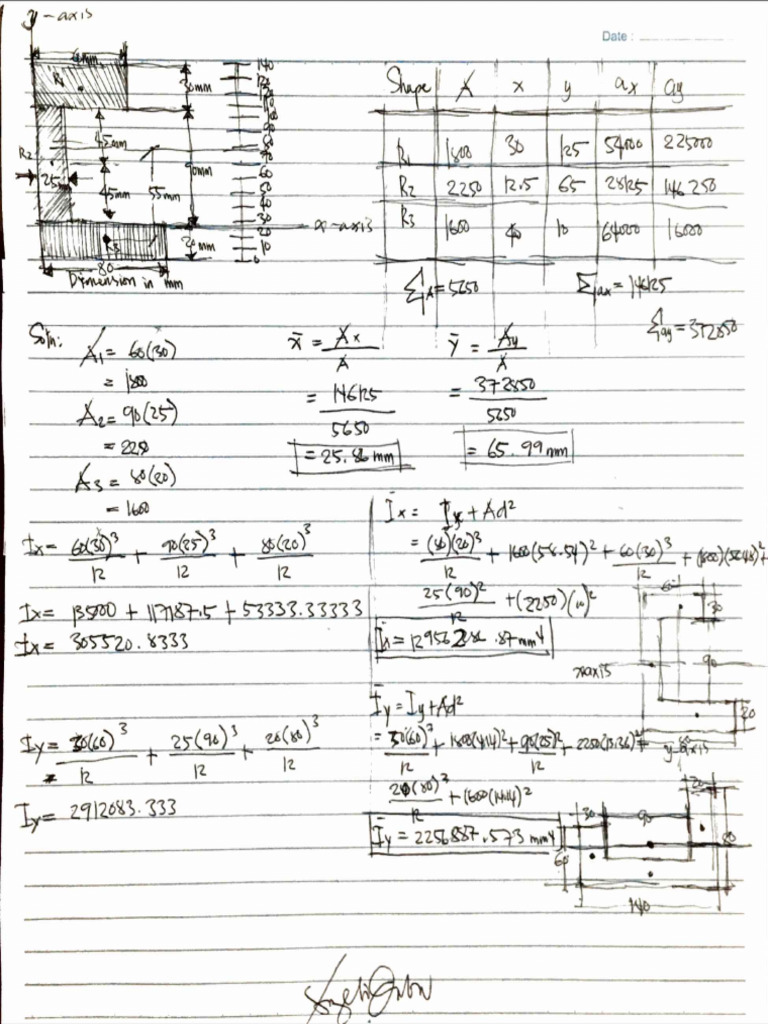 y-axis
Date :
60mm
R1
30mm
R2
45mm
25mm
45mm
55mm
90mm
20mm
R3
80
Dimension in mm
x-axis
140
130
120
110
100
90
80
70
60
50
40
30
20
10
0
Shape A x y ax ay
R1 1800 30 125 54000 225000
R2 2250 12.5 65 28125 146250
R3 1600 40 10 64000 16000
Σ A = 5650 Σ ax = 146125
Σ ay = 372850
Soln:
A1 = 60(30)
= 1800
A2 = 90(25)
= 2250
A3 = 80(20)
= 1600
x̄ = Ax / A
= 146125 / 5650
= 25.86 mm
ȳ = Ay / A
= 372850 / 5650
= 65.99 mm
Ix = 60(30)³/12 + 90(25)³/12 + 80(20)³/12
Ix = 135000 + 117187.5 + 53333.33333
Ix = 305520.8333
Iy = 30(60)³/12 + 25(90)³/12 + 20(80)³/12
Iy = 2912083.333
Īx = Ix + Ad²
= (80)(20)³/12 + 1600(58.54)² + 60(30)³/12 +
25(90)²/12 + (2250)(10)²
Īx = 12956286.87 mm4
60
30
90
x axis
20
y-axis
Īy = Iy + Ad²
= 30(60)³/12 + 1800(4.14)² + 90(25)³/12 + 2250(13.36)² +
20(80)³/12 + 1600(14.14)²
Īy = 2256887.573 mm4
30
90
20
80
60
140